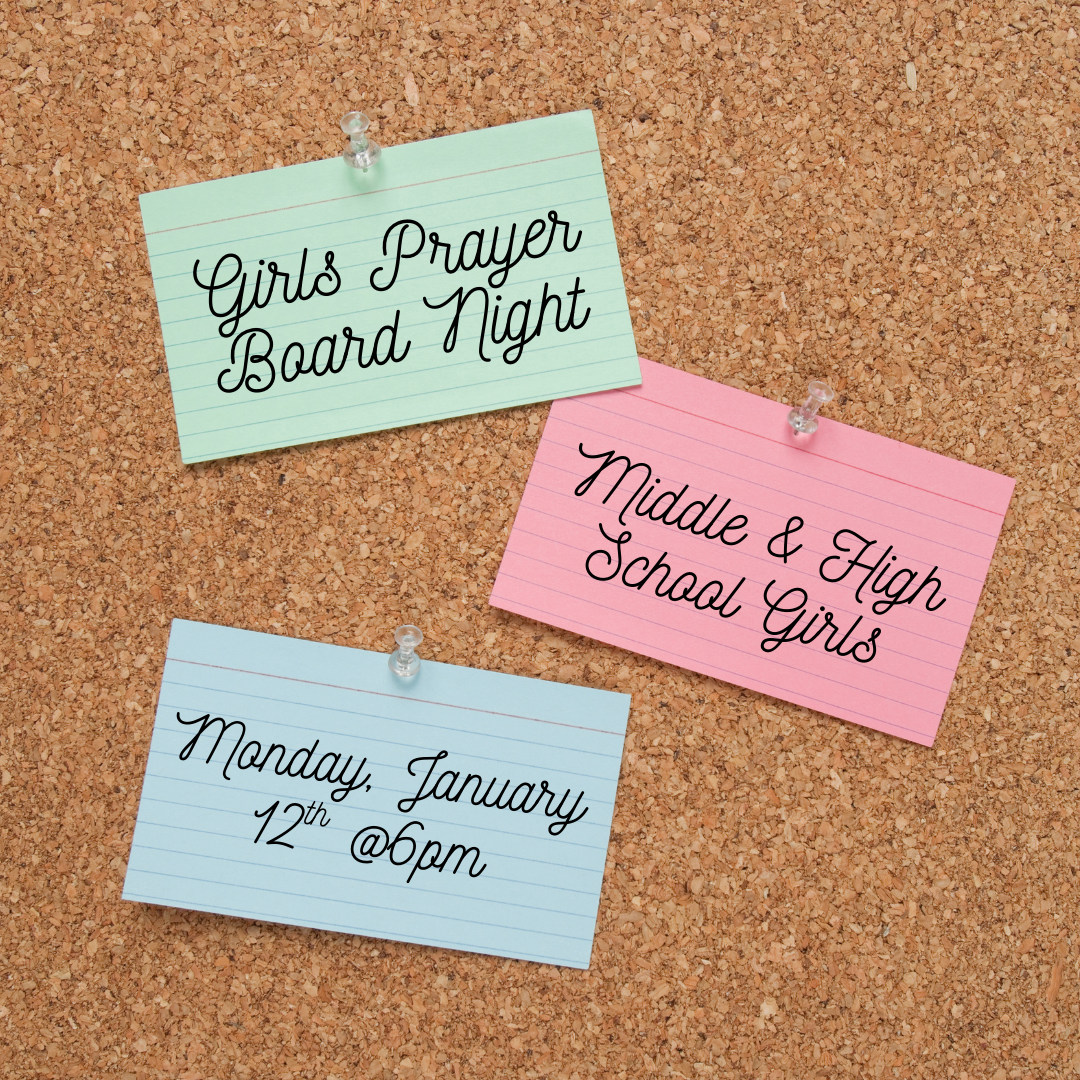 Girls Prayer
Board Night
Middle & High
School Girls
Monday, January
12th @6pm